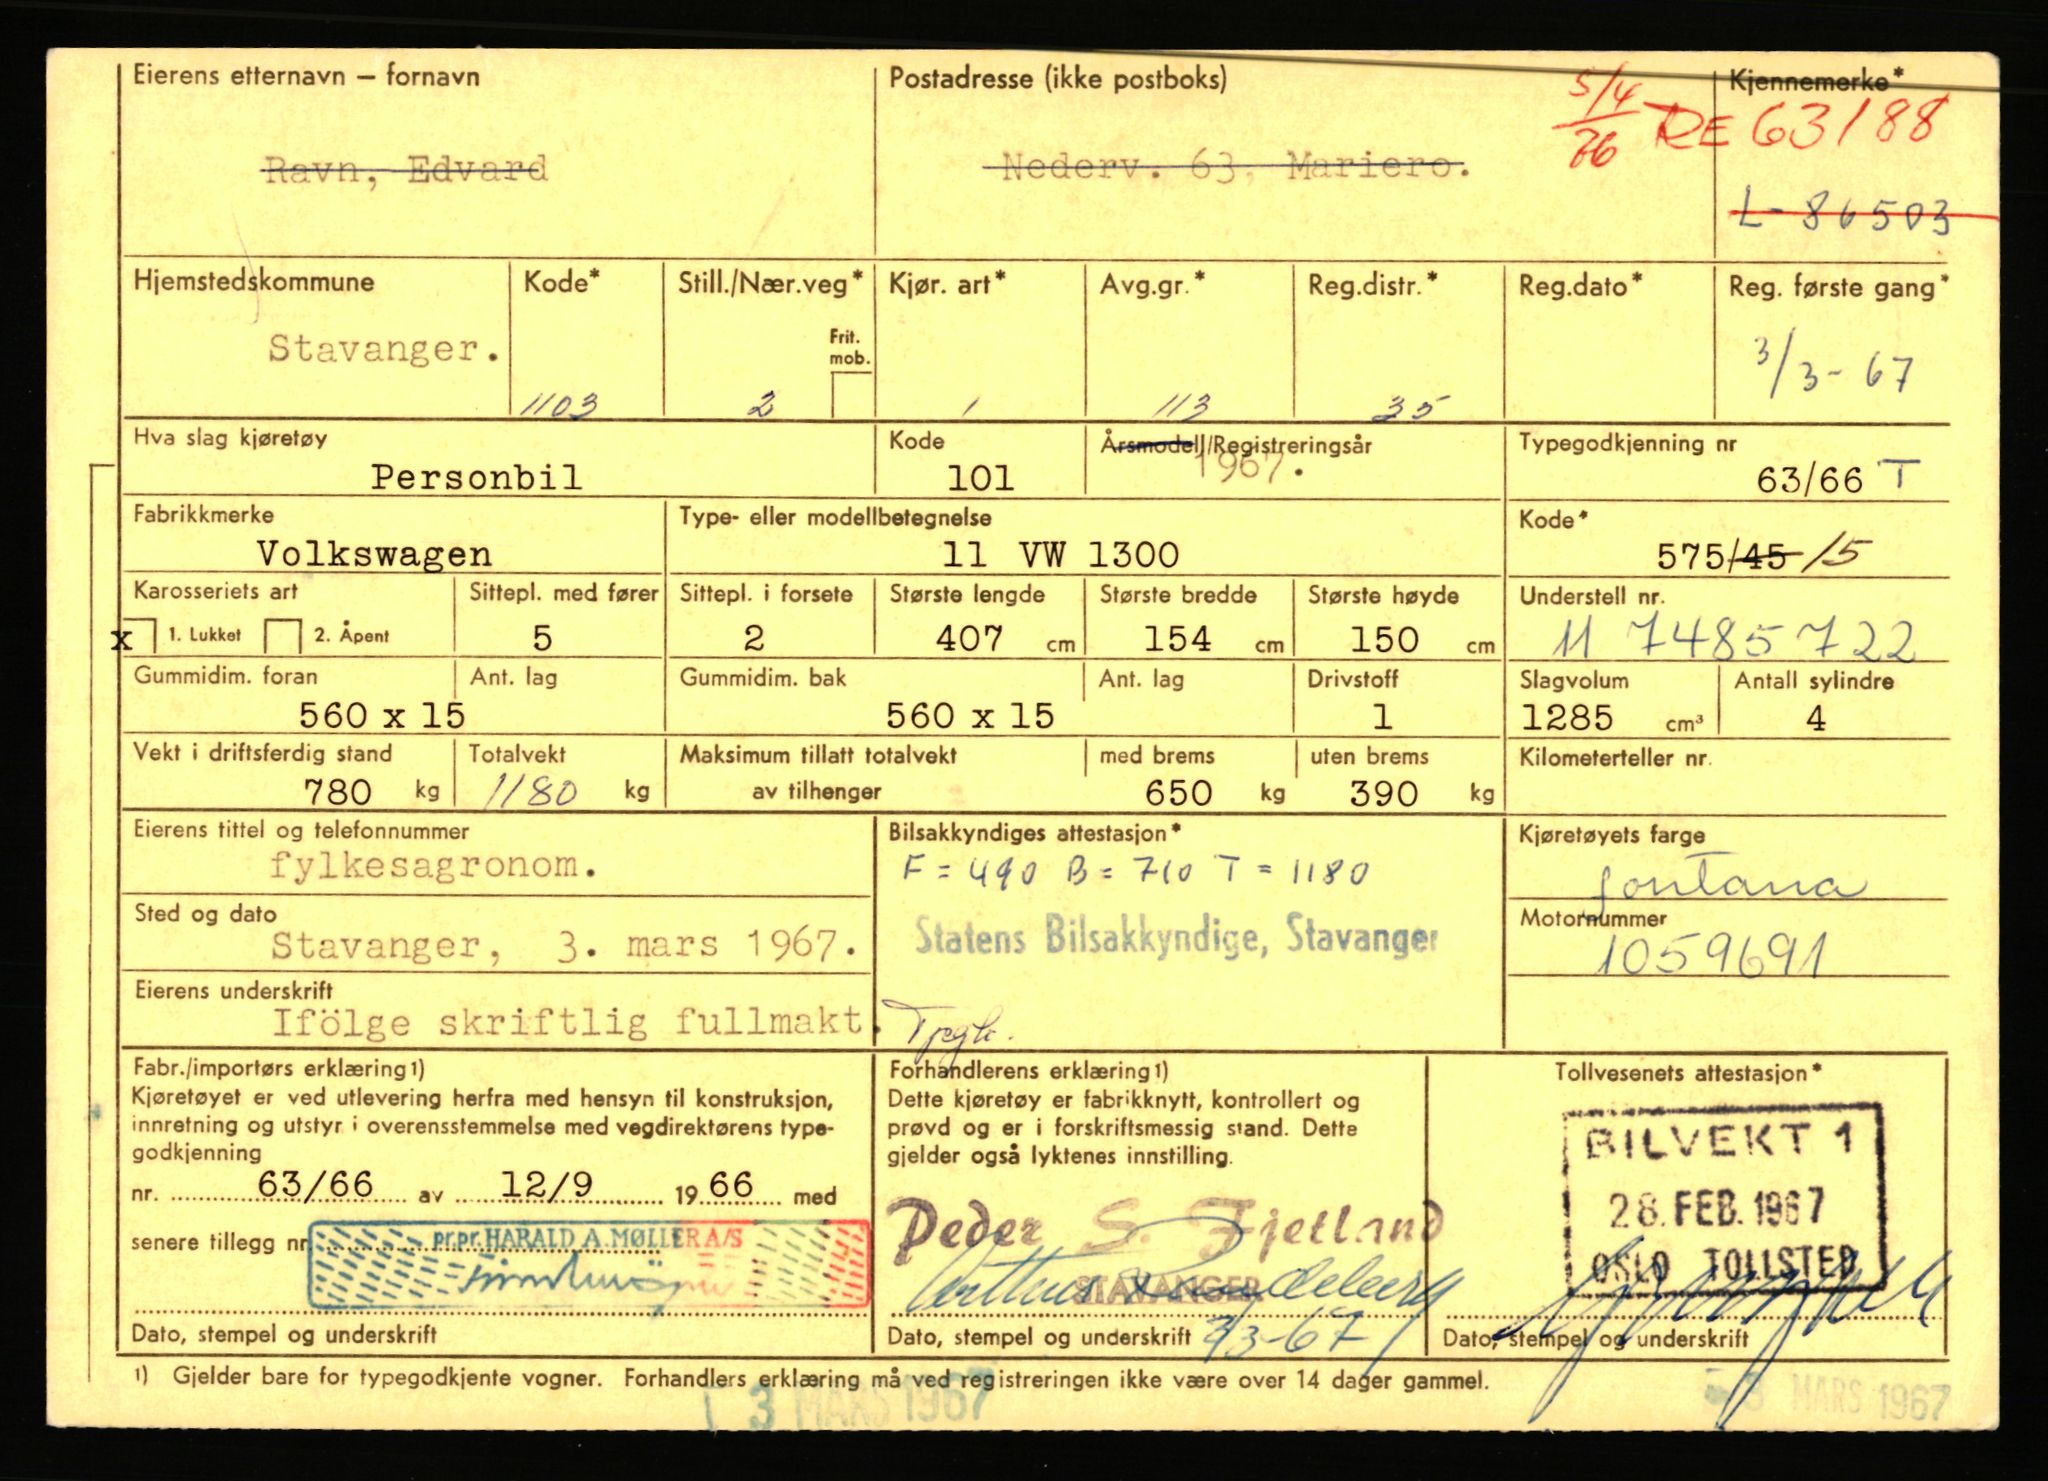 Eierens etternavn – fornavn
Ravn, Edvard
Postadresse (ikke postboks)
Nederv. 63, Mariero.
5/4 76
Kjennemerke*
RE 63188
L-86503
Hjemstedskommune
Stavanger.
Kode*
1103
Still./Nær.veg*
Frit. mob.
2
Kjør. art*
1
Avg.gr.*
113
Reg.distr.*
35
Reg.dato*
Reg. første gang*
3/3-67
Hva slag kjøretøy
Personbil
Kode
101
Årsmodell/Registreringsår
1967.
Typegodkjenning nr
63/66 T
Fabrikkmerke
Volkswagen
Type- eller modellbetegnelse
11 VW 1300
Kode*
575/45 15
Karosseriets art
x 1. Lukket 2. Åpent
Sittepl. med fører
5
Sittepl. i forsete
2
Største lengde
407 cm
Største bredde
154 cm
Største høyde
150 cm
Understell nr.
11 7485722
Gummidim. foran
560 x 15
Ant. lag
Gummidim. bak
560 x 15
Ant. lag
Drivstoff
1
Slagvolum
1285 cm³
Antall sylindre
4
Vekt i driftsferdig stand
780 kg
Totalvekt
1180 kg
Maksimum tillatt totalvekt
av tilhenger
med brems
650 kg
uten brems
390 kg
Kilometerteller nr.
Eierens tittel og telefonnummer
fylkesagronom.
Bilsakkyndiges attestasjon*
F = 490 B = 710 T = 1180
Statens Bilsakkyndige, Stavanger
Kjøretøyets farge
fontana
Sted og dato
Stavanger, 3. mars 1967.
Motornummer
1059691
Eierens underskrift
Ifölge skriftlig fullmakt.
Fabr./importørs erklæring1)
Kjøretøyet er ved utlevering herfra med hensyn til konstruksjon,
innretning og utstyr i overensstemmelse med vegdirektørens type-
godkjenning
nr. 63/66 av 12/9 1966 med
senere tillegg nr.
pr.pr. HARALD A. MØLLER A/S
Dato, stempel og underskrift
Forhandlerens erklæring1)
Dette kjøretøy er fabrikknytt, kontrollert og
prøvd og er i forskriftsmessig stand. Dette
gjelder også lyktenes innstilling.
Peder S. Fjetland
STAVANGER
Dato, stempel og underskrift 3/3-67
Tollvesenets attestasjon*
BILVEKT 1
28. FEB. 1967
OSLO TOLLSTED
Dato, stempel og underskrift
1) Gjelder bare for typegodkjente vogner. Forhandlers erklæring må ved registreringen ikke være over 14 dager gammel.
3 MARS 1967
3 MARS 1967